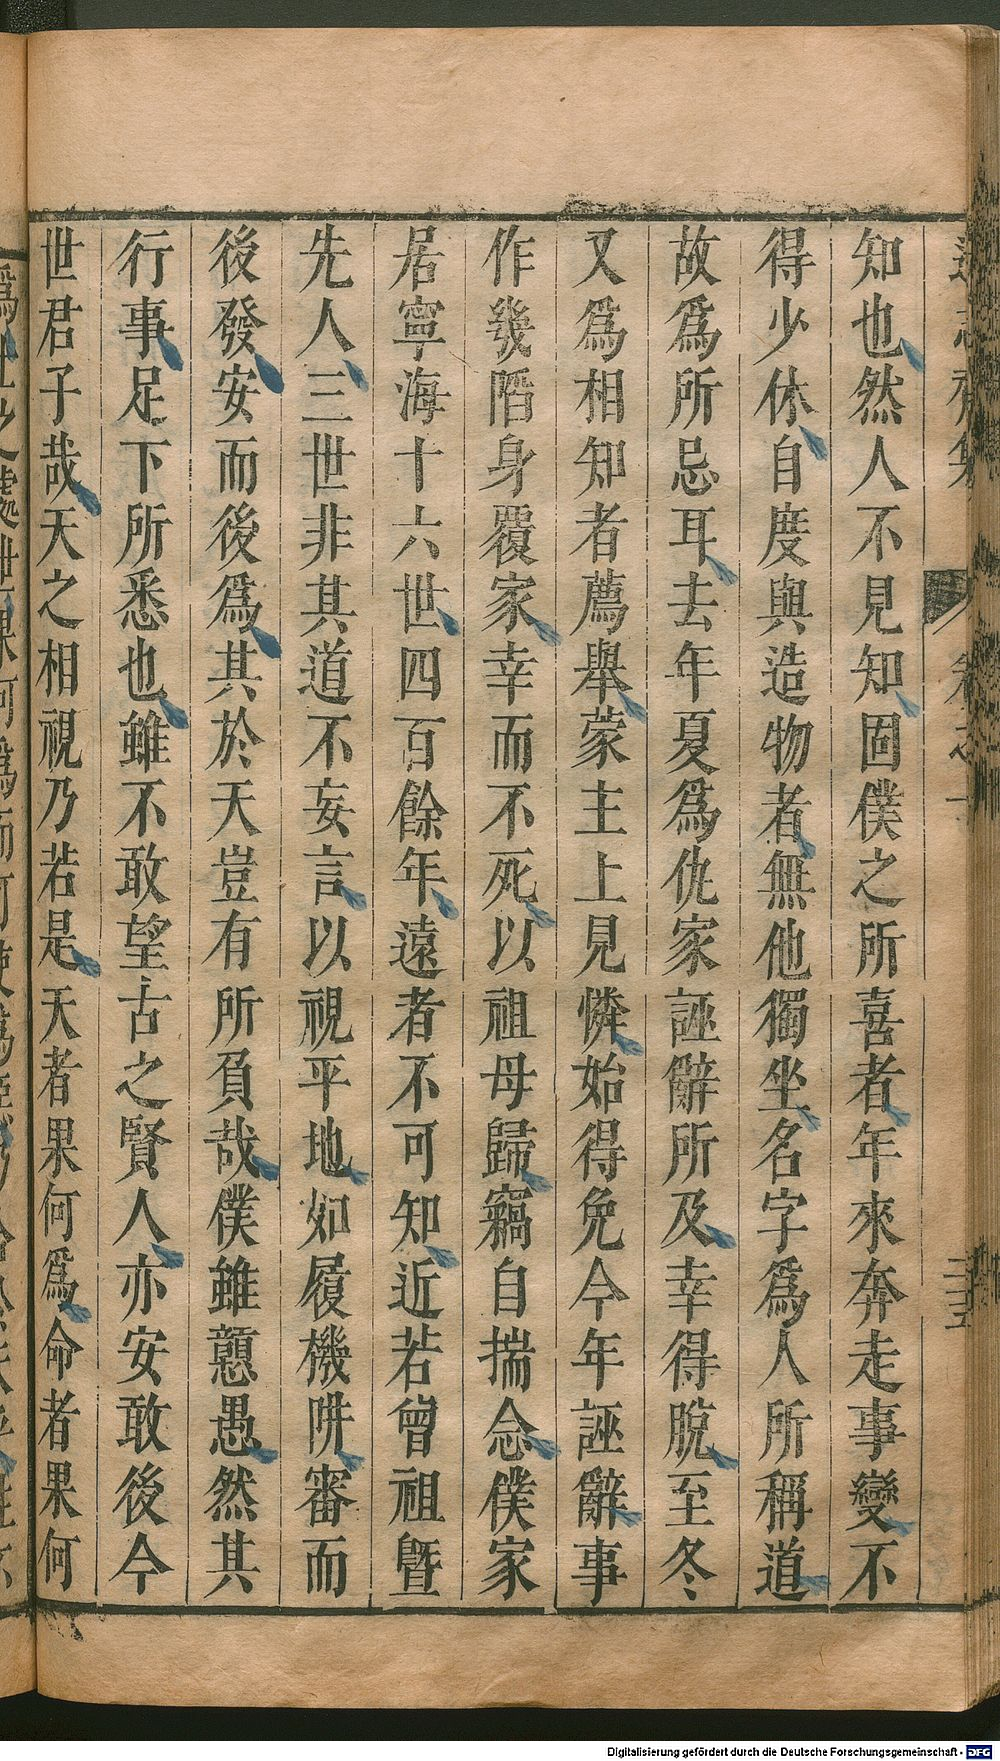 知也然人不見知固僕之所喜者年來奔走事變不
得少休自度與造物者無他獨坐名字爲人所稱道
故爲所忌耳去年夏爲仇家誣辭所及幸得脫至冬
又爲相知者薦舉蒙主上見憐始得免今年誣辭事
作幾陷身覆家幸而不死以祖母歸竊自揣念僕家
居寧海十六世四百餘年遠者不可知近若曾祖曁
先人三世非其道不妄言以視平地如履機阱審而
後發安而後爲其於天豈有所負哉僕雖戅愚然其
行事足下所悉也雖不敢望古之賢人亦安敢後今
世君子哉天之相視乃若是天者果何爲命者果何
Digitalisierung gefördert durch die Deutsche Forschungsgemeinschaft - DFG